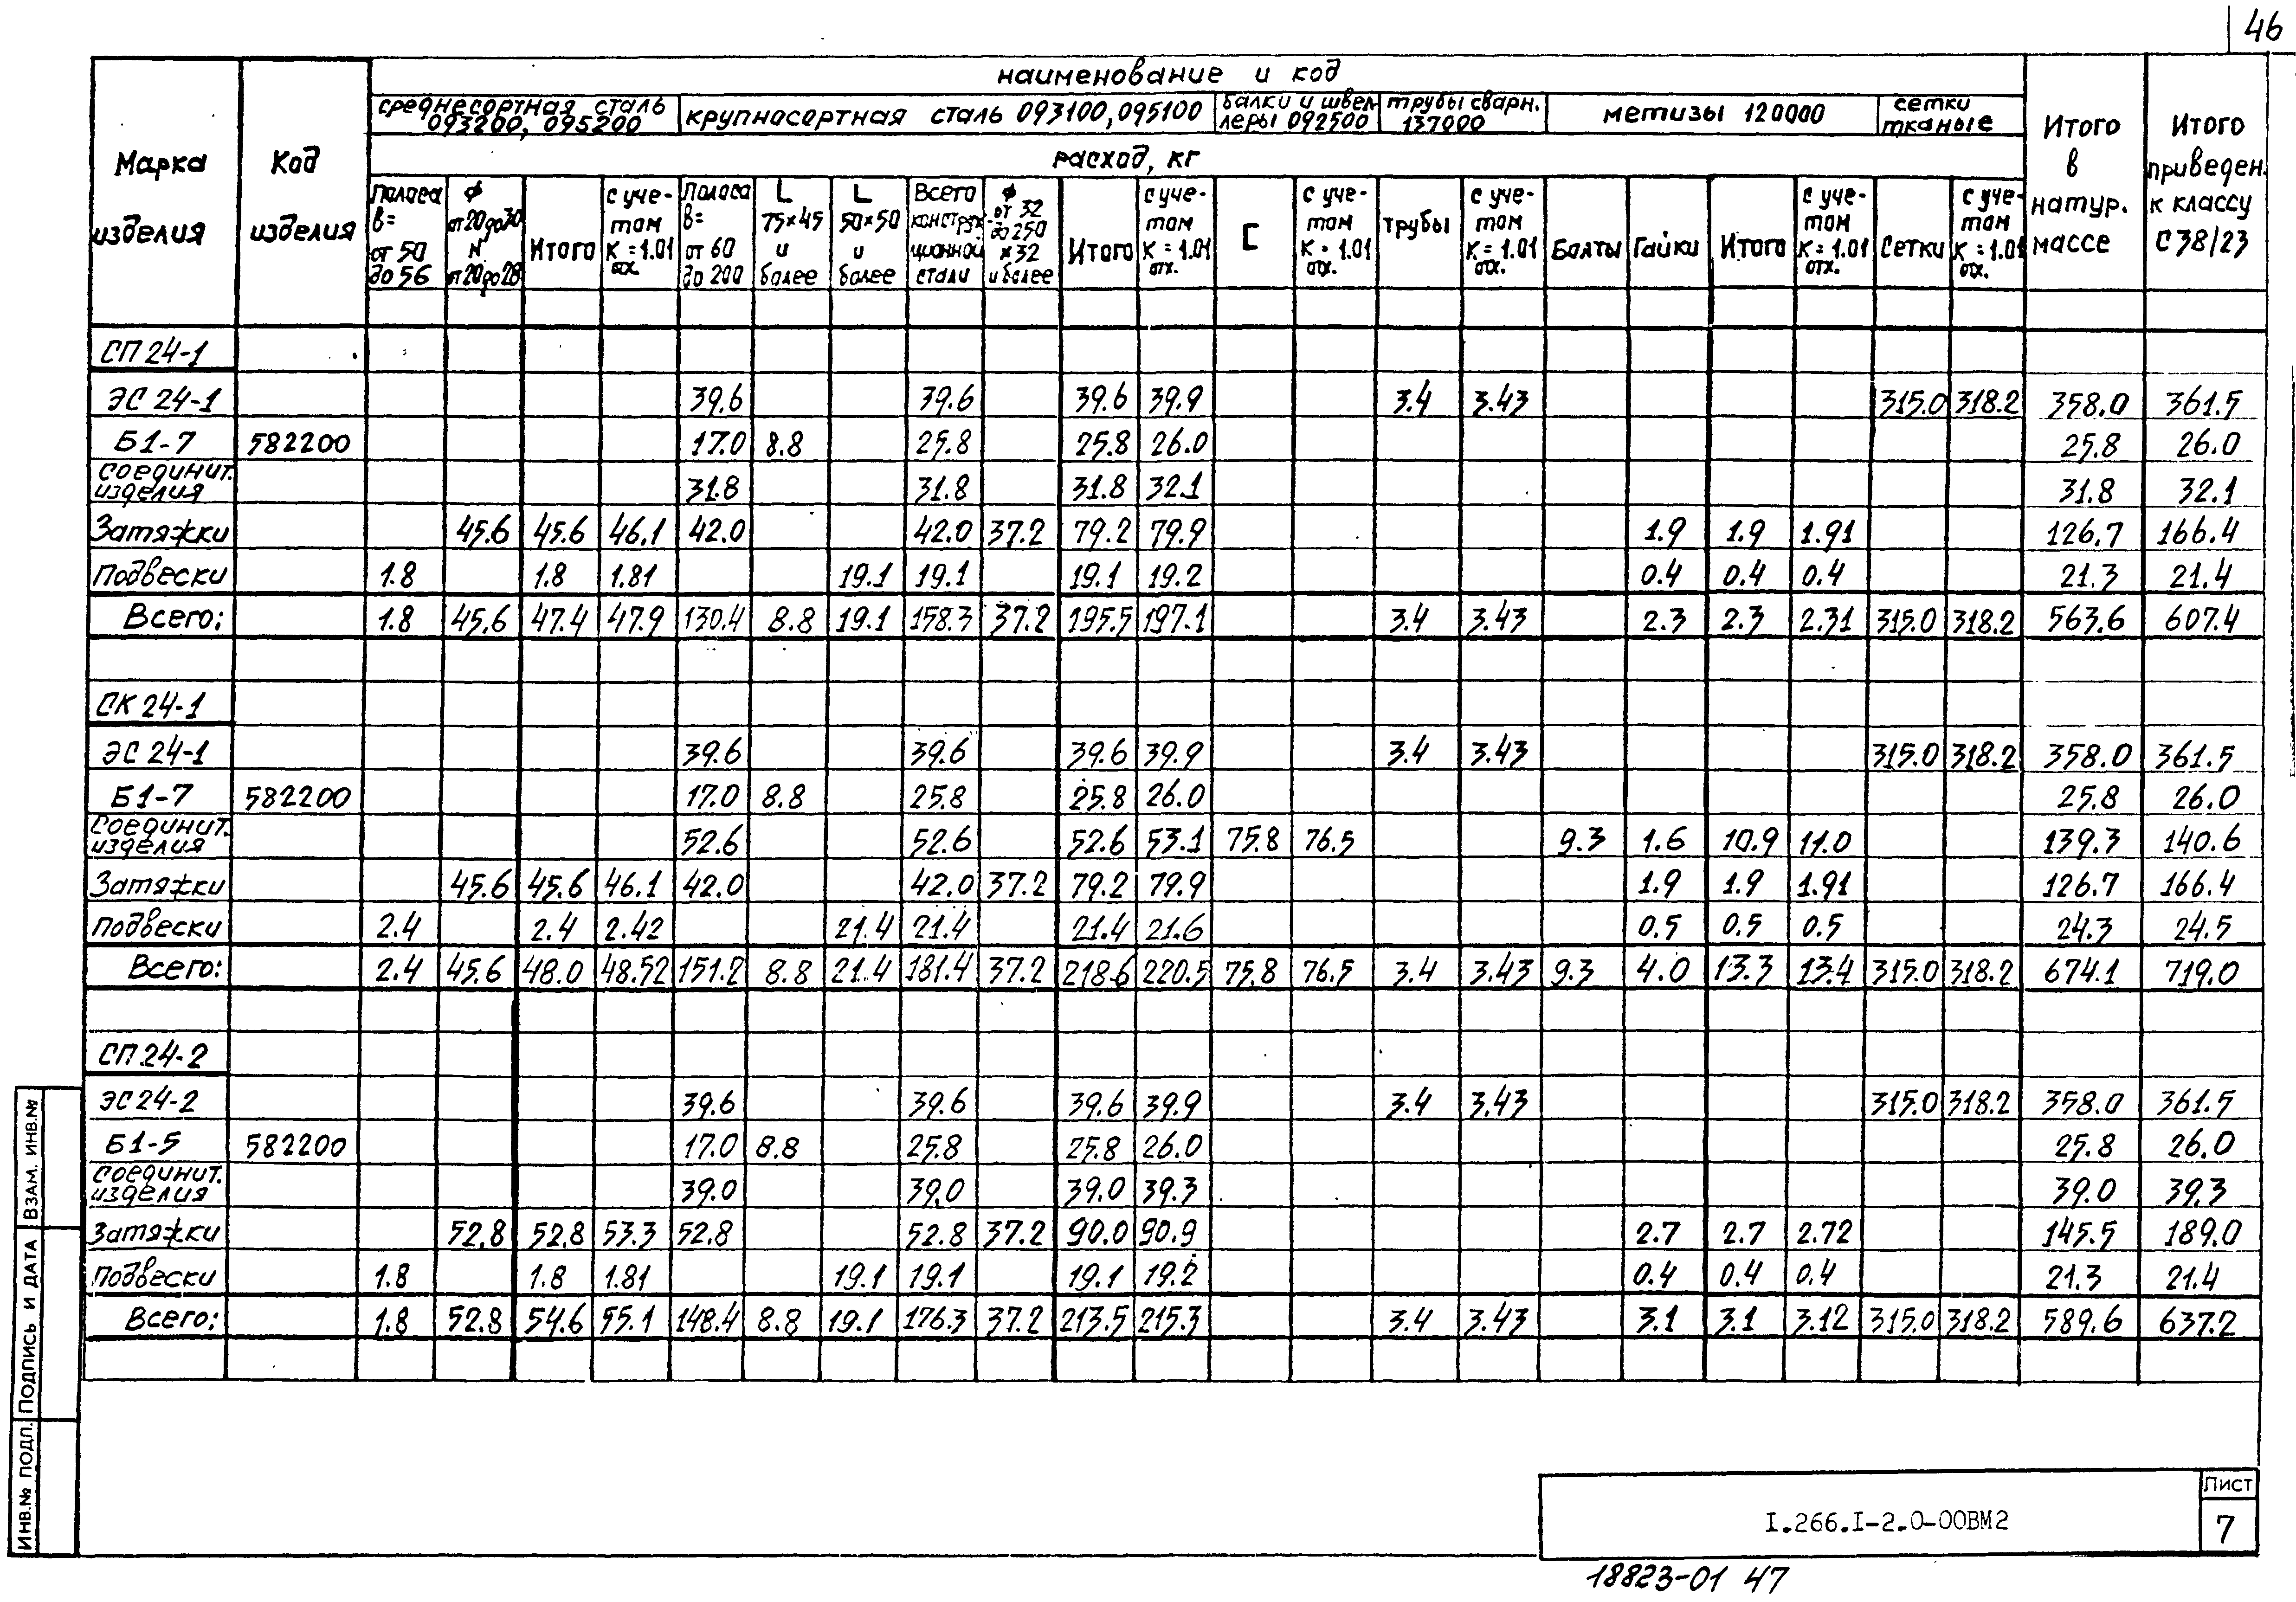 46
наименование и код
среднесортная сталь 093200, 095200 | крупносортная сталь 093100, 095100 | балки и швеллеры 092500 | трубы сварн. 137000 | метизы 120000 | сетки тканые
Марка изделия | Код изделия | расход, кг | Итого в натур. массе | Итого приведен. к классу С38/23
Полоса в= от 50 до 56 | ϕ от 20 до 30 N от 20 до 28 | Итого | с учетом К=1.01 отх. | Полоса в= от 60 до 200 | L 75×45 и более | L 50×50 и более | Всего конструкционной стали | ϕ от 32 до 250 ×32 и более | Итого | с учетом К=1.01 отх. | [ | с учетом К=1.01 отх. | трубы | с учетом К=1.01 отх. | Болты | Гайки | Итого | с учетом К=1.01 отх. | Сетки | с учетом К=1.01 отх.
СП 24-1
ЭС 24-1 39.6 39.6 39.6 39.9 3.4 3.43 315.0 318.2 358.0 361.5
Б1-7 582200 17.0 8.8 25.8 25.8 26.0 25.8 26.0
Соединит. изделия 31.8 31.8 31.8 32.1 31.8 32.1
Затяжки 45.6 45.6 46.1 42.0 42.0 37.2 79.2 79.9 1.9 1.9 1.91 126.7 166.4
Подвески 1.8 1.8 1.81 19.1 19.1 19.1 19.2 0.4 0.4 0.4 21.3 21.4
Всего: 1.8 45.6 47.4 47.9 130.4 8.8 19.1 158.3 37.2 195.5 197.1 3.4 3.43 2.3 2.3 2.31 315.0 318.2 563.6 607.4
СК 24-1
ЭС 24-1 39.6 39.6 39.6 39.9 3.4 3.43 315.0 318.2 358.0 361.5
Б1-7 582200 17.0 8.8 25.8 25.8 26.0 25.8 26.0
Соединит. изделия 52.6 52.6 52.6 53.1 75.8 76.5 9.3 1.6 10.9 11.0 139.3 140.6
Затяжки 45.6 45.6 46.1 42.0 42.0 37.2 79.2 79.9 1.9 1.9 1.91 126.7 166.4
подвески 2.4 2.4 2.42 21.4 21.4 21.4 21.6 0.5 0.5 0.5 24.3 24.5
Всего: 2.4 45.6 48.0 48.52 151.2 8.8 21.4 181.4 37.2 218.6 220.5 75.8 76.5 3.4 3.43 9.3 4.0 13.3 13.4 315.0 318.2 674.1 719.0
СП 24-2
ЭС 24-2 39.6 39.6 39.6 39.9 3.4 3.43 315.0 318.2 358.0 361.5
Б1-5 582200 17.0 8.8 25.8 25.8 26.0 25.8 26.0
Соединит. изделия 39.0 39.0 39.0 39.3 39.0 39.3
Затяжки 52.8 52.8 53.3 52.8 52.8 37.2 90.0 90.9 2.7 2.7 2.72 145.5 189.0
Подвески 1.8 1.8 1.81 19.1 19.1 19.1 19.2 0.4 0.4 0.4 21.3 21.4
Всего: 1.8 52.8 54.6 55.1 148.4 8.8 19.1 176.3 37.2 213.5 215.3 3.4 3.43 3.1 3.1 3.12 315.0 318.2 589.6 637.2
ИНВ.№ ПОДЛ. ПОДПИСЬ И ДАТА ВЗАМ. ИНВ.№
I.266.I-2.0-00ВМ2
Лист
7
18823-01 47